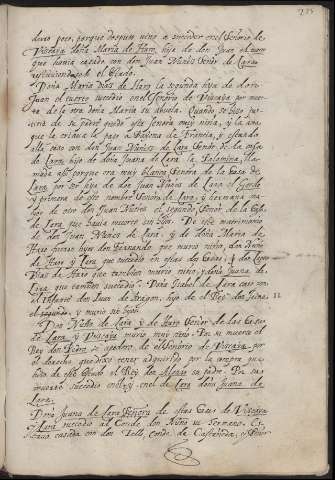 235
duró poco, porque despues vino a suceder en el Señorio de
Vizcaya doña Maria de Haro, hija de don Juan el tuerto
que hauia casado con don Juan Nuñez Señor de Lara
restituiendosele el Estado.
Doña Maria Dias de Haro la segunda hija de don
Juan el tuerto sucedio en el Señorio de Vizcaya por muer
te de la otra doña Maria su abuela. Quando
de su padre quedo esta Señora muy niña, y la ama
que la criaua la paso a Bayona de Francia, y estando
alla caso con don Juan Nuñez de Lara Señor de la casa
de Lara hijo de doña Juana de Lara la Palomina, lla
mada assi porque era muy blanca Señora de la Casa de
Lara por ser hija de don Juan Nuñez de Lara el Gordo
y primero de este nombre Señor de Lara, y hermana ma
yor de otro don Juan Nuñez el segundo Señor de la Casa
de Lara, que hauia muerto sin hijos. De este matrimonio
de don Juan Nuñez de Lara, y de doña Maria de
Haro fueron hijos don Fernando que murio niño, don Nuño
de Haro y Lara que sucedio en estas dos Casas, don Lope
Dias de Haro que tambien murio niño, y doña Juana de
Lara que tambien sucedio. Doña Isabel de Lara caso con
el Infante don Juan de Aragon, hijo de el Rey don Jaime
el segundo, y murio sin hijos.
Don Nuño de Lara y de Haro Señor de las Casas
de Lara y Vizcaya murio muy niño. Por su muerte el
Rey don Pedro se apodero de el Señorio de Vizcaya, por
el derecho que dixo tener adquirido por la compra que
hizo de este Estado el Rey don Alonso su padre. Por
sucedio en el, y en el de Lara doña Juana de
Lara.
Doña Juana de Lara Señora de estas Casas de Vizcaya
y Lara sucedio al Conde don Nuño su hermano. Es
taua casada con don Tello Conde de Castañeda, y Señor